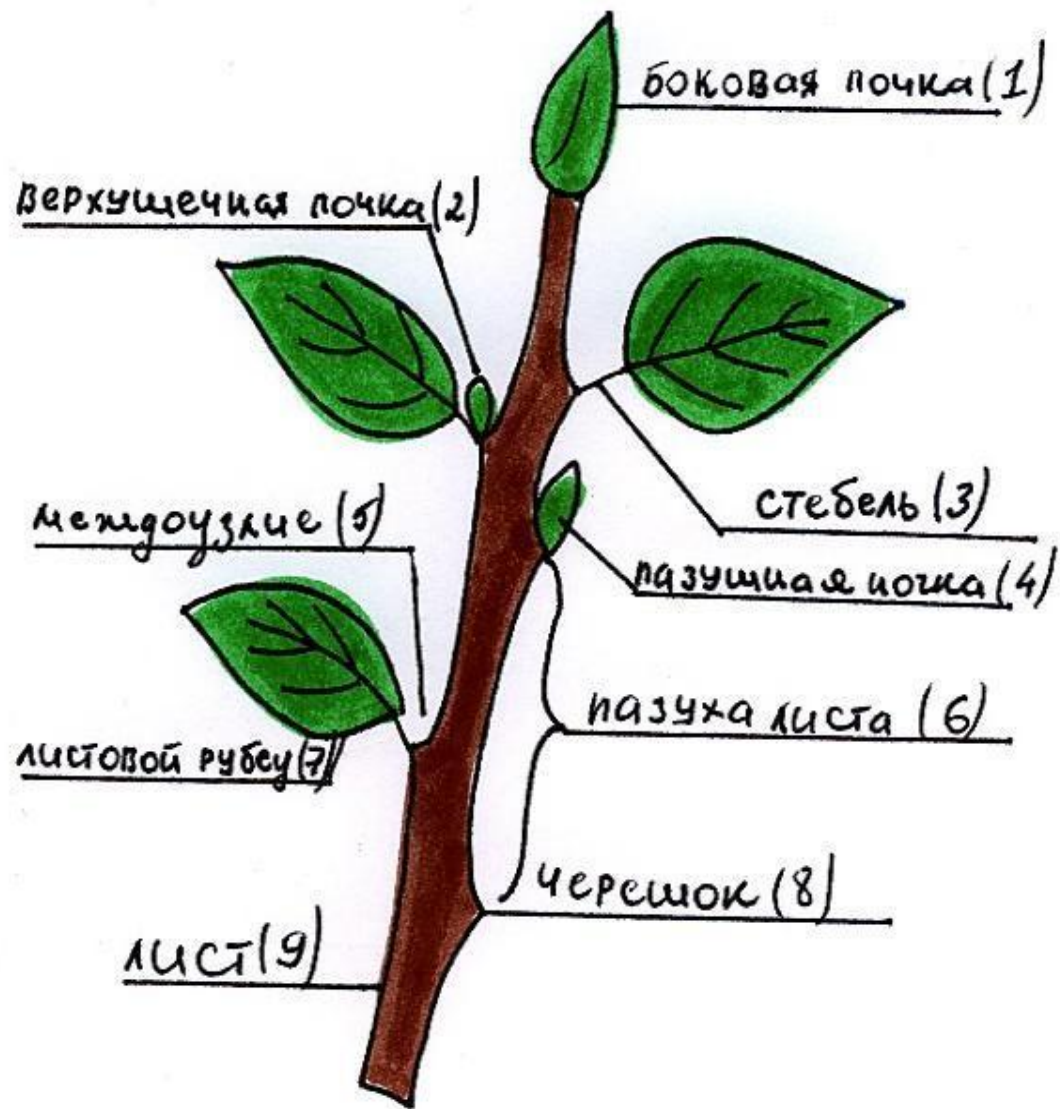 боковая почка (1)
верхушечная почка (2)
стебель (3)
пазушная почка (4)
междоузлие (5)
пазуха листа (6)
листовой рубец (7)
черешок (8)
лист (9)